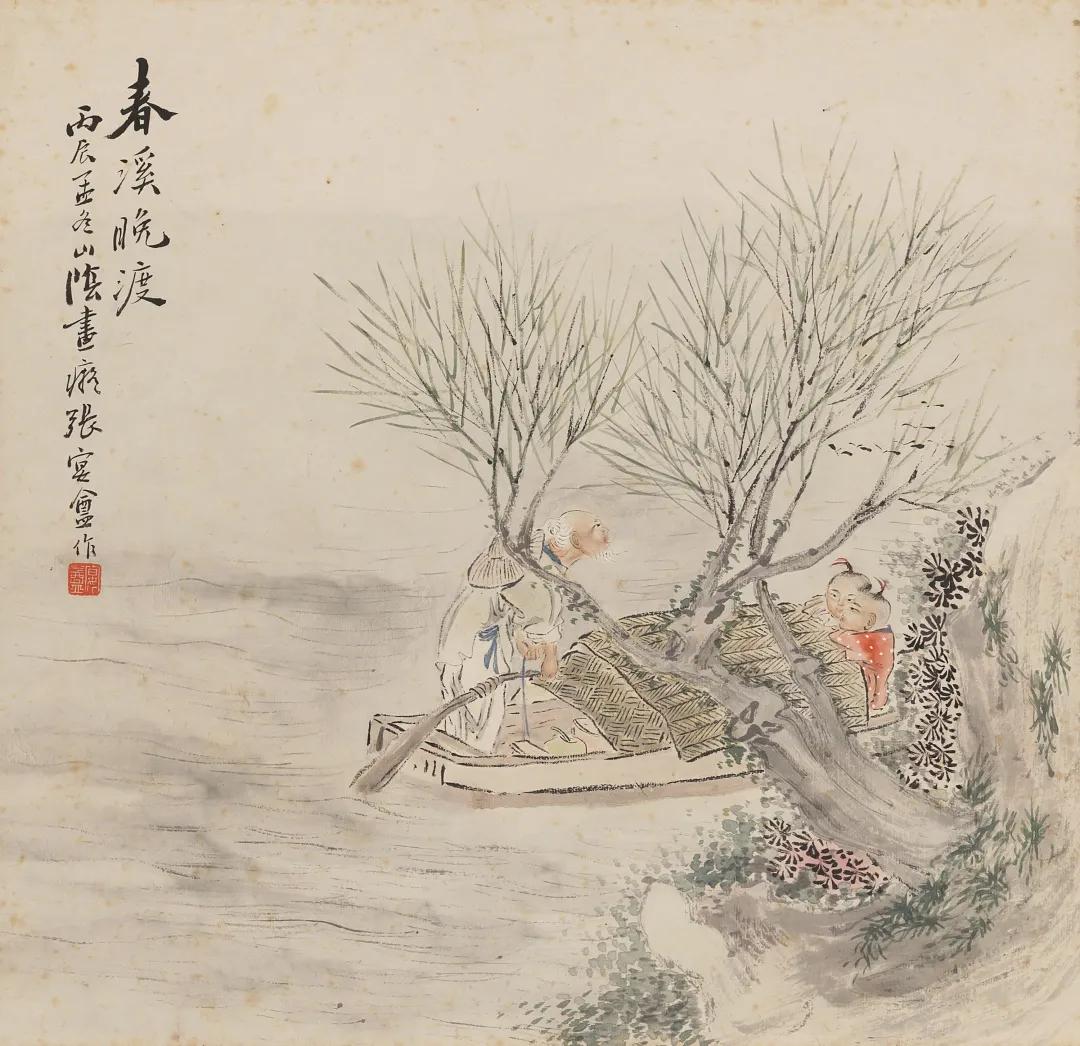 春溪晚渡
丙辰孟冬山陰畫癡張盦作